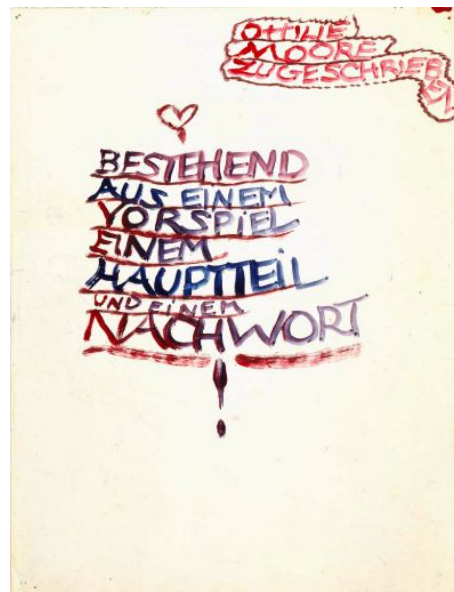 OTTILIE
MOORE
ZUGESCHRIEB
EN
BESTEHEND
AUS EINEM
VORSPIEL
EINEM
HAUPTTEIL
UND EINEM
NACHWORT
!